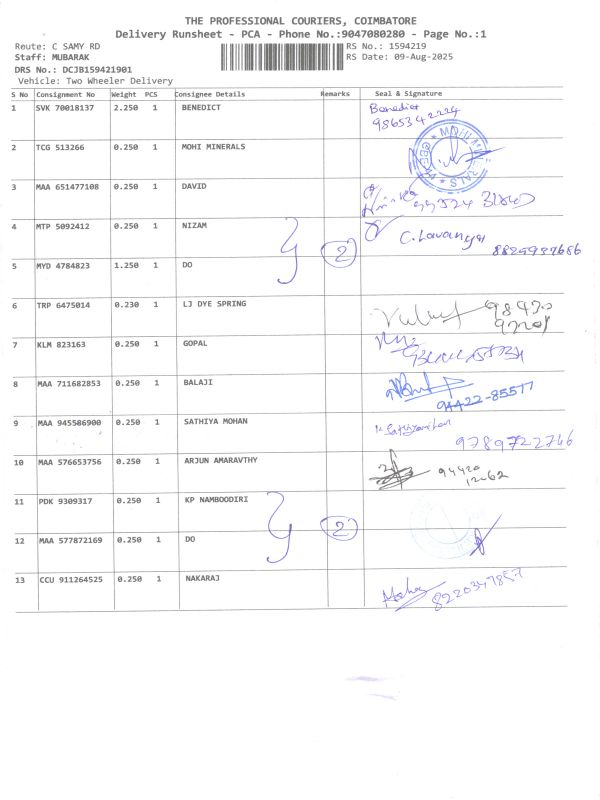 THE PROFESSIONAL COURIERS, COIMBATORE
Delivery Runsheet - PCA - Phone No.:9047080280 - Page No.:1
Route: C SAMY RD RS No.: 1594219
Staff: MUBARAK RS Date: 09-Aug-2025
DRS No.: DCJB159421901
Vehicle: Two Wheeler Delivery
S No Consignment No Weight PCS Consignee Details Remarks Seal & Signature
1 SVK 70018137 2.250 1 BENEDICT Benedict
9865342224
2 TCG 513266 0.250 1 MOHI MINERALS
3 MAA 651477108 0.250 1 DAVID
4 MTP 5092412 0.250 1 NIZAM 2 C. Lavanya
8824937686
5 MYD 4784823 1.250 1 DO
6 TRP 6475014 0.230 1 LJ DYE SPRING
7 KLM 823163 0.250 1 GOPAL
8 MAA 711682853 0.250 1 BALAJI
94422-85577
9 MAA 945586900 0.250 1 SATHIYA MOHAN
9789722766
10 MAA 576653756 0.250 1 ARJUN AMARAVTHY 94420
12062
11 PDK 9309317 0.250 1 KP NAMBOODIRI 2
12 MAA 577872169 0.250 1 DO
13 CCU 911264525 0.250 1 NAKARAJ 8220347857